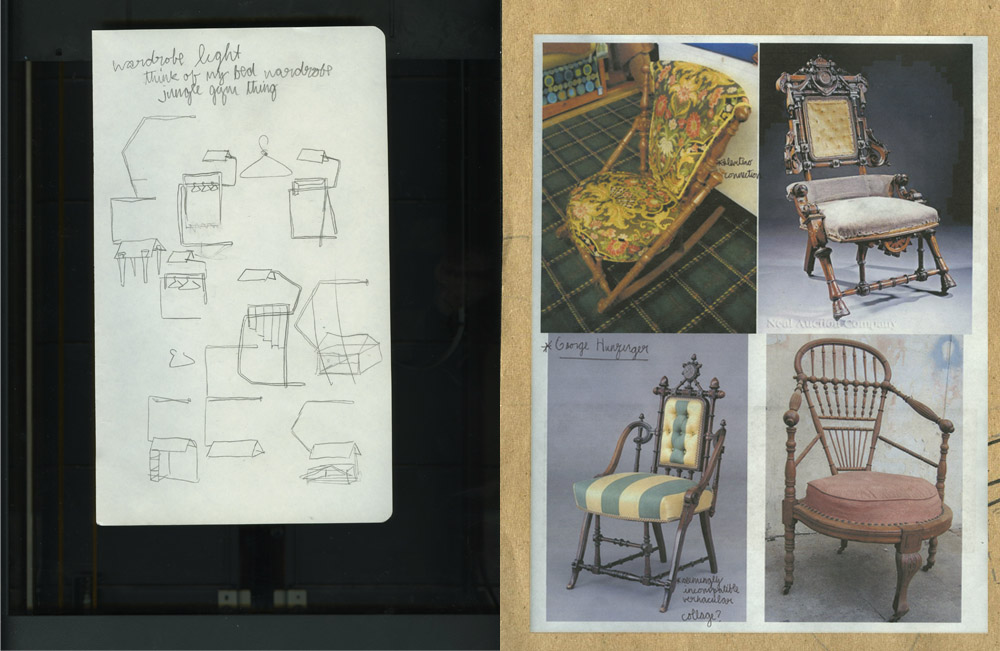 wardrobe light
think of my bed wardrobe
jungle gym thing
*Valentino
connection
Neal Auction Company
* George Hunzinger
*seemingly
incompatible
vernacular
collage?